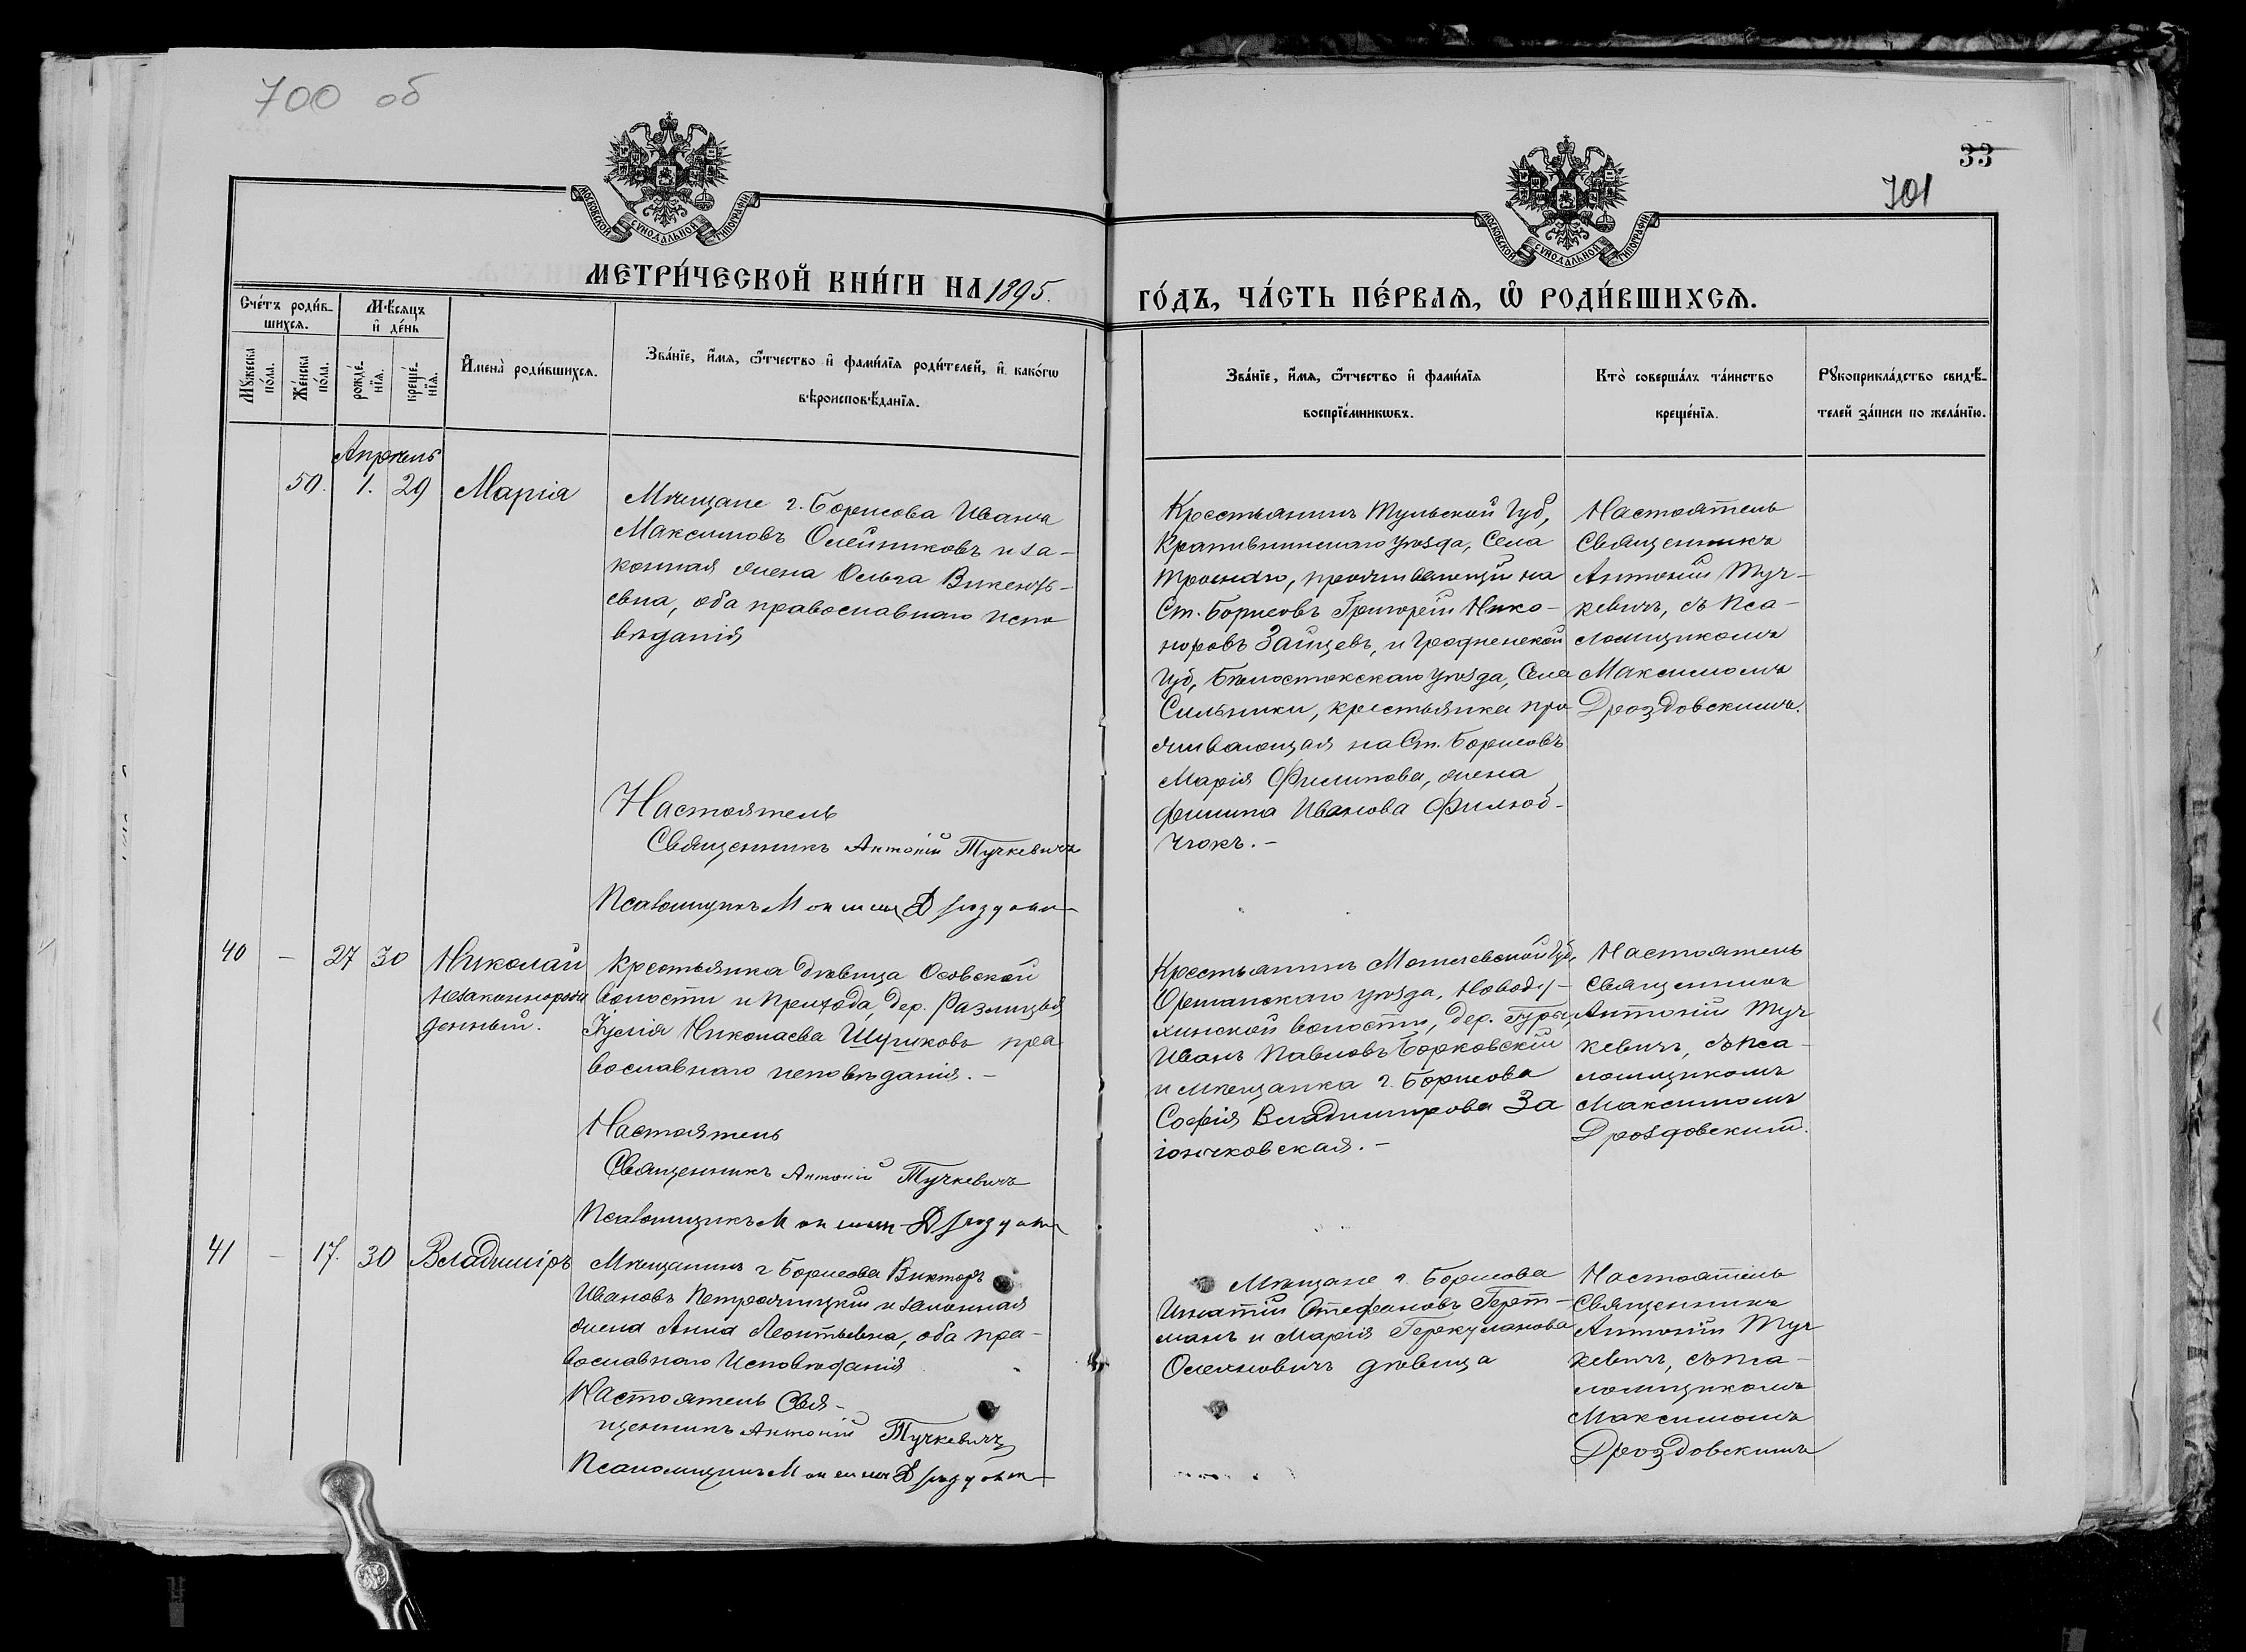 700 об
33
701
МОСКОВСКОЙ СѴНОДАЛЬНОЙ ТИПОГРАФІИ
МОСКОВСКОЙ СѴНОДАЛЬНОЙ ТИПОГРАФІИ
МЕТРИ́ЧЕСКОЙ КНИ́ГИ НА 1895.
ГО́ДЪ, ЧА́СТЬ ПЕ́РВАЯ, Ѡ҆ РОДИ́ВШИХСЯ.
Сче́тъ роди́в-
шихся.
Мѣсяцъ
и҆ де́нь
Мꙋ́жеска
по́ла.
Же́нска
по́ла.
рожде́-
нїя.
креще́-
нїя.
И҆мена̀ роди́вшихся.
Зва́нїе, и҆́мя, ѻ҆́тчество и҆ фами́лїя роди́телей, и҆ како́гѡ
вѣроисповѣ́данїя.
Зва́нїе, и҆́мя, ѻ҆́тчество и҆ фами́лїя
воспрїе́мникѡвъ.
Кто̀ соверша́лъ та́инство
креще́нїя.
Рꙋкоприкла́дство свидѣ́-
телей за́писи по жела́нїю.
Апрѣль
50. 1. 29 Марія
Мѣщане г. Борисова Иванъ
Максимовъ Олейниковъ и за-
конная жена Ольга Викентъ-
евна, оба православнаго испо
вѣданія
Настоятель
Священникъ Антоній Тучкевичъ
Псаломщикъ Максимъ Дроздовск
Крестьянинъ Тульской Губ,
Крапивинскаго уѣзда, Села
проживающій на
Ст. Борисовъ Григорій Нико-
норовъ Зайцевъ, и Гродненской
Губ, Бѣлостокскаго уѣзда, Села
Сильники, крестьянка про
живающая на Ст. Борисовъ
Марія Филипова, жена
Филипа Иванова Филюб-
чюкъ. -
Настоятель
Священникъ
Антоній Туч-
кевичъ, съ Пса-
ломщикомъ
Максимомъ
Дроздовскимъ.
40 - 27 30 Николай
незаконнорож
денный.
Крестьянка дѣвица Осовской
волости и прихода, дер. Разлицья
Іулія Николаева Шушковъ пра
вославнаго исповѣданія. -
Настоятель
Священникъ Антоній Тучкевичъ
Псаломщикъ Максимъ Дроздовск
Крестьянинъ Могилевской Губ,
Оршанскаго уѣзда, Новоду-
хинской волости, дер. Гуры,
Иванъ Павловъ Борковскій
и мѣщанка г. Борисова
Софія Владимирова За
іончковская. -
Настоятель
Священникъ
Антоній Туч
кевичъ, съ пса-
ломщикомъ
Максимомъ
Дроздовскимъ.
41 - 17. 30 Владиміръ
Мѣщанинъ г Борисова Викторъ
Ивановъ Петрожицкій и законная
жена Анна Леонтьевна, оба пра-
вославнаго Исповѣданія
Настоятель Свя-
щенникъ Антоній Тучкевичъ
Псаломщикъ Максимъ Дроздовск
Мѣщане г. Борисова
Игнатій Стефановъ Герт-
манъ и Марія Геркуланова
Олехновичъ дѣвица
Настоятель
Священникъ
Антоній Туч
кевичъ, съ пса-
ломщикомъ
Максимомъ
Дроздовскимъ